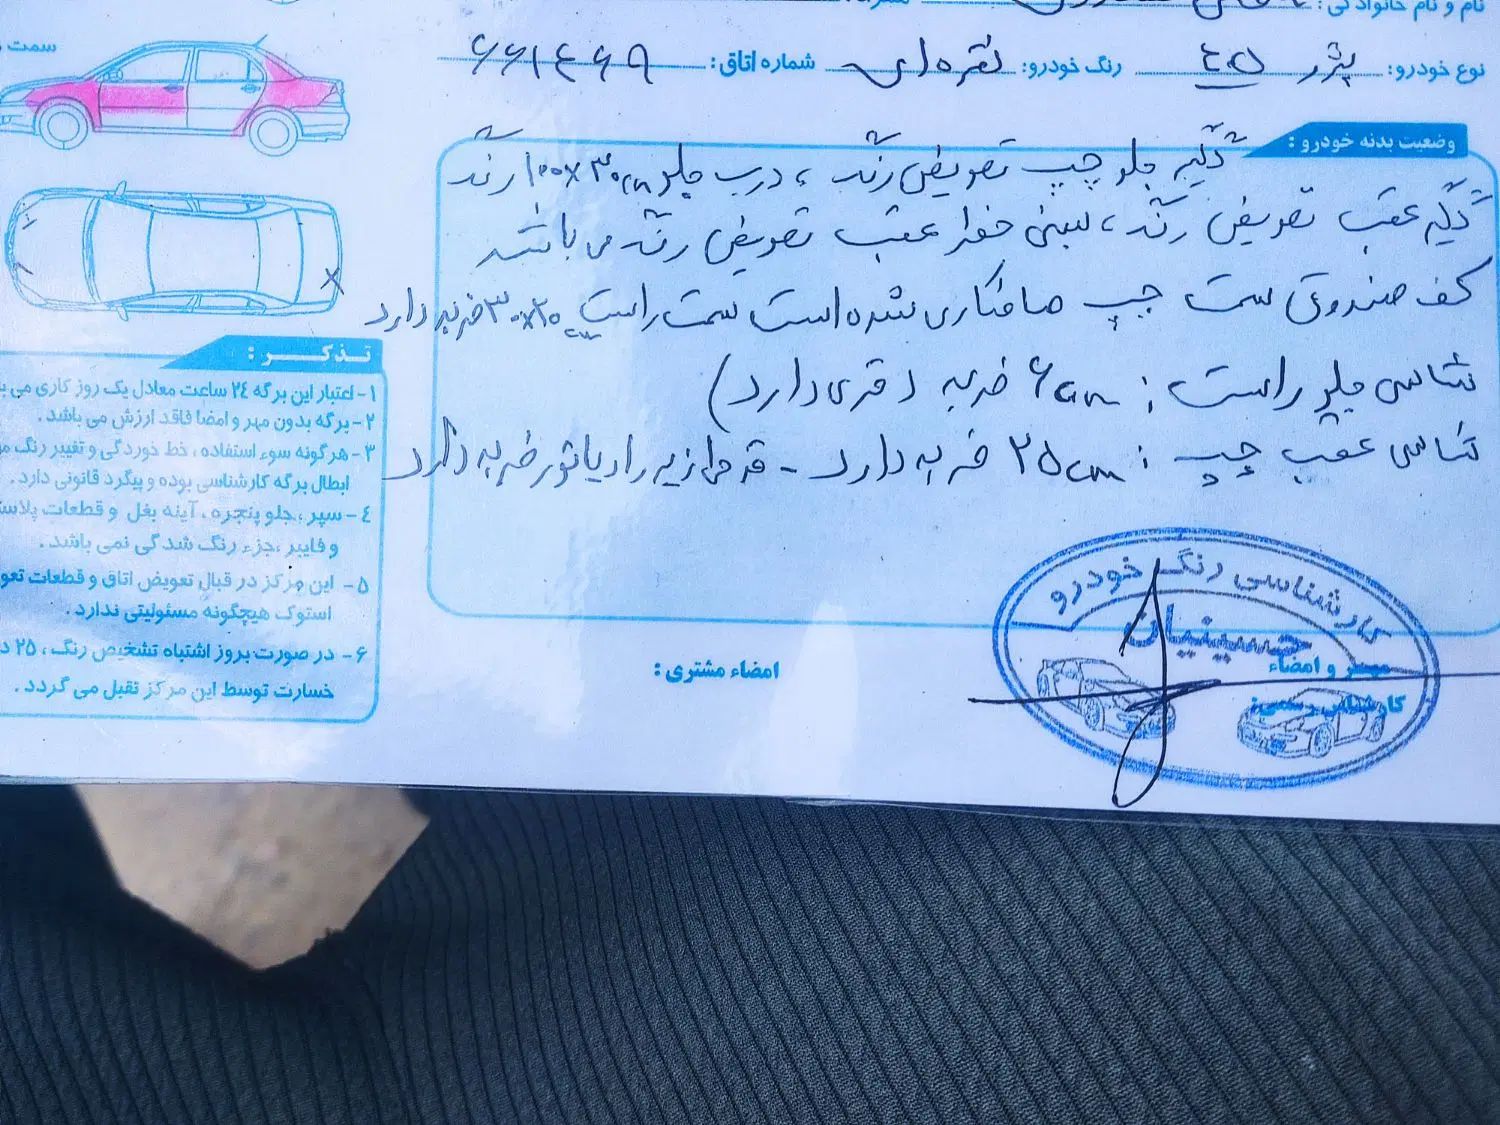 نام و نام خانوادگی :
نوع خودرو: پژو ۴۰۵ رنگ خودرو: نقره ای شماره اتاق: ۶۶۱۴۶۹
سمت
وضعیت بدنه خودرو :
گلگیر جلو چپ تعویض رنگ ، درب جلو ۱۰۰x۳۰cm رنگ
گلگیر عقب تعویض رنگ ، سینی عقب تعویض رنگ می باشد
کف صندوق سمت چپ صافکاری شده است سمت راست ۳۰x۲۰ ضربه دارد
شاسی جلو راست : ۶cm ضربه دارد)
شاسی عقب چپ : ۲۵cm ضربه دارد - زیر رادیاتور ضربه دارد
تـذکـــر :
۱- اعتبار این برگه ۲۴ ساعت معادل یک روز کاری می
۲- برگه بدون مهر و امضا فاقد ارزش می باشد .
۳- هرگونه سوء استفاده ، خط خوردگی و تغییر رنگ
ابطال برگه کارشناسی بوده و پیگرد قانونی دارد .
۴- سپر ، جلو پنجره ، آینه بغل و قطعات
و فایبر ،جزء رنگ شدگی نمی باشد .
۵- این مرکز در قبال تعویض اتاق و قطعات
استوک هیچگونه مسئولیتی ندارد .
۶- در صورت بروز اشتباه تشخیص رنگ ، ۲۵
خسارت توسط این مرکز تقبل می گردد .
امضاء مشتری :
مهر و امضاء
کارشناس رسمی:
کارشناسی رنگ خودرو
حسینیان